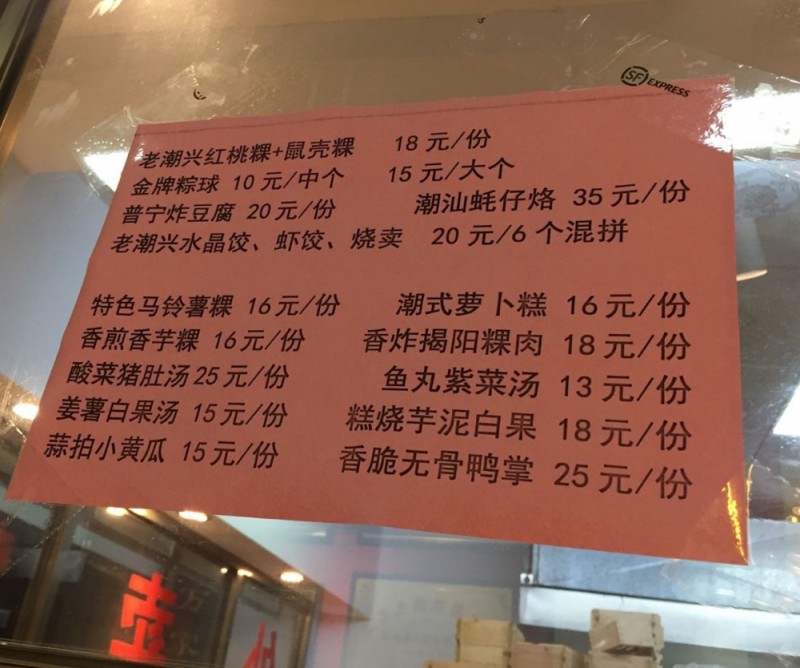 SF EXPRESS
老潮兴红桃粿+鼠壳粿 18元/份
金牌粽球 10元/中个 15元/大个
普宁炸豆腐 20元/份 潮汕蚝仔烙 35元/份
老潮兴水晶饺、虾饺、烧卖 20元/6个混拼
特色马铃薯粿 16元/份 潮式萝卜糕 16元/份
香煎香芋粿 16元/份 香炸揭阳粿肉 18元/份
酸菜猪肚汤25元/份 鱼丸紫菜汤 13元/份
姜薯白果汤 15元/份 糕烧芋泥白果 18元/份
蒜拍小黄瓜 15元/份 香脆无骨鸭掌 25元/份